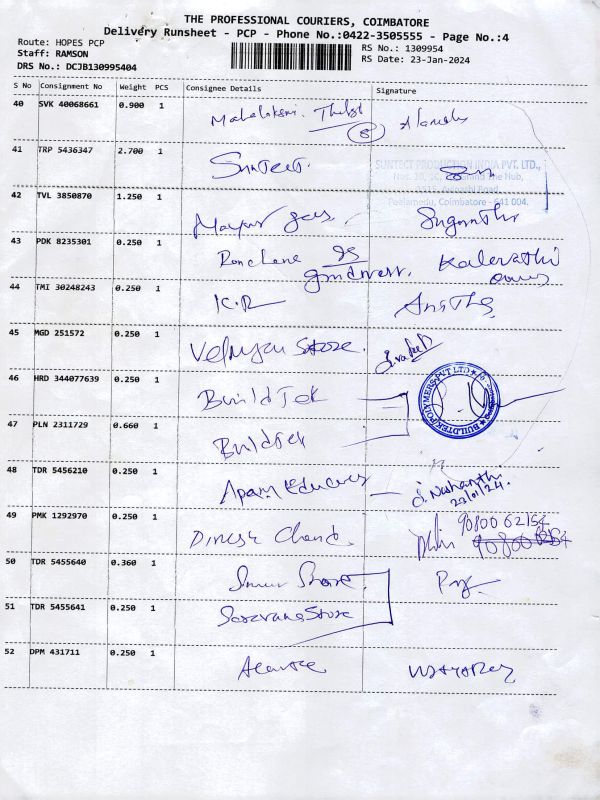 THE PROFESSIONAL COURIERS, COIMBATORE
Delivery Runsheet - PCP - Phone No.:0422-3505555 - Page No.:4
Route: HOPES PCP
Staff: RAMSON
DRS No.: DCJB130995404
RS No.: 1309954
RS Date: 23-Jan-2024
S No Consignment No Weight PCS Consignee Details Signature
40 SVK 40068661 0.900 1 Mahalaksmi
41 TRP 5436347 2.700 1 Suntect.
SUNTECT PRODUCTION INDIA PVT. LTD.,
The Hub,
Road,
Peelamedu, Coimbatore - 641 004.
42 TVL 3850870 1.250 1 Mayur Suganthi
43 PDK 8235301 0.250 1 Kalevathi
44 TMI 30248243 0.250 1 K.R Anitha
45 MGD 251572 0.250 1 Velmyan Store.
46 HRD 344077639 0.250 1 BuildTek
BUILDTEK POLYMERS PVT LTD
47 PLN 2311729 0.660 1 BuildTek
48 TDR 5456210 0.250 1 Nishanthi
23/01/24.
49 PMK 1292970 0.250 1 Dinesh Chand. 9080062154
50 TDR 5455640 0.360 1
51 TDR 5455641 0.250 1 Saravana Store
52 DPM 431711 0.250 1